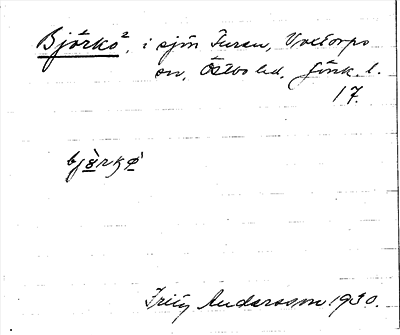 Björkö², i sjön Furen, Voxtorps
sn, Östbo hd, Jönk. l.
17.
bjö̀rkø̀
Fritz Andersson 1930.